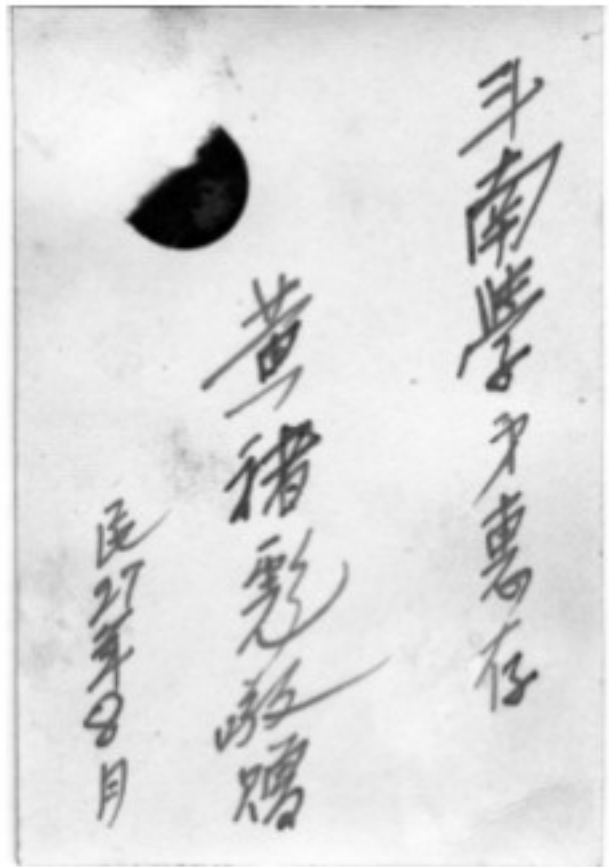 斗南學弟惠存
黃緒彪敬贈
民27年8月